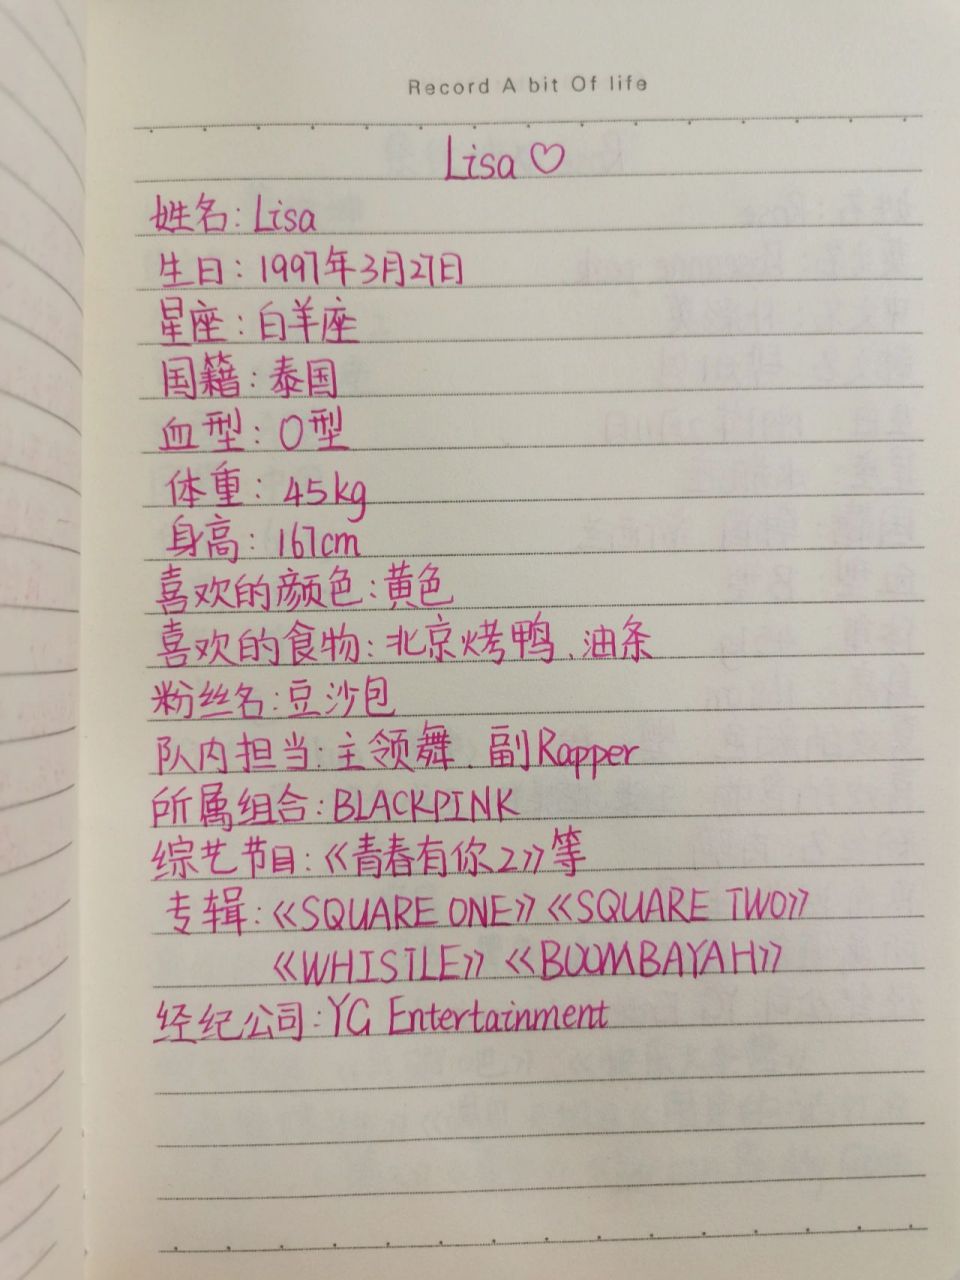 Record A bit Of life
Lisa♡
姓名：Lisa
生日：1997年3月27日
星座：白羊座
国籍：泰国
血型：O型
体重：45kg
身高：167cm
喜欢的颜色：黄色
喜欢的食物：北京烤鸭、油条
粉丝名：豆沙包
队内担当：主领舞、副Rapper
所属组合：BLACKPINK
综艺节目：《青春有你2》等
专辑：《SQUARE ONE》《SQUARE TWO》
《WHISTLE》《BOOMBAYAH》
经纪公司：YG Entertainment